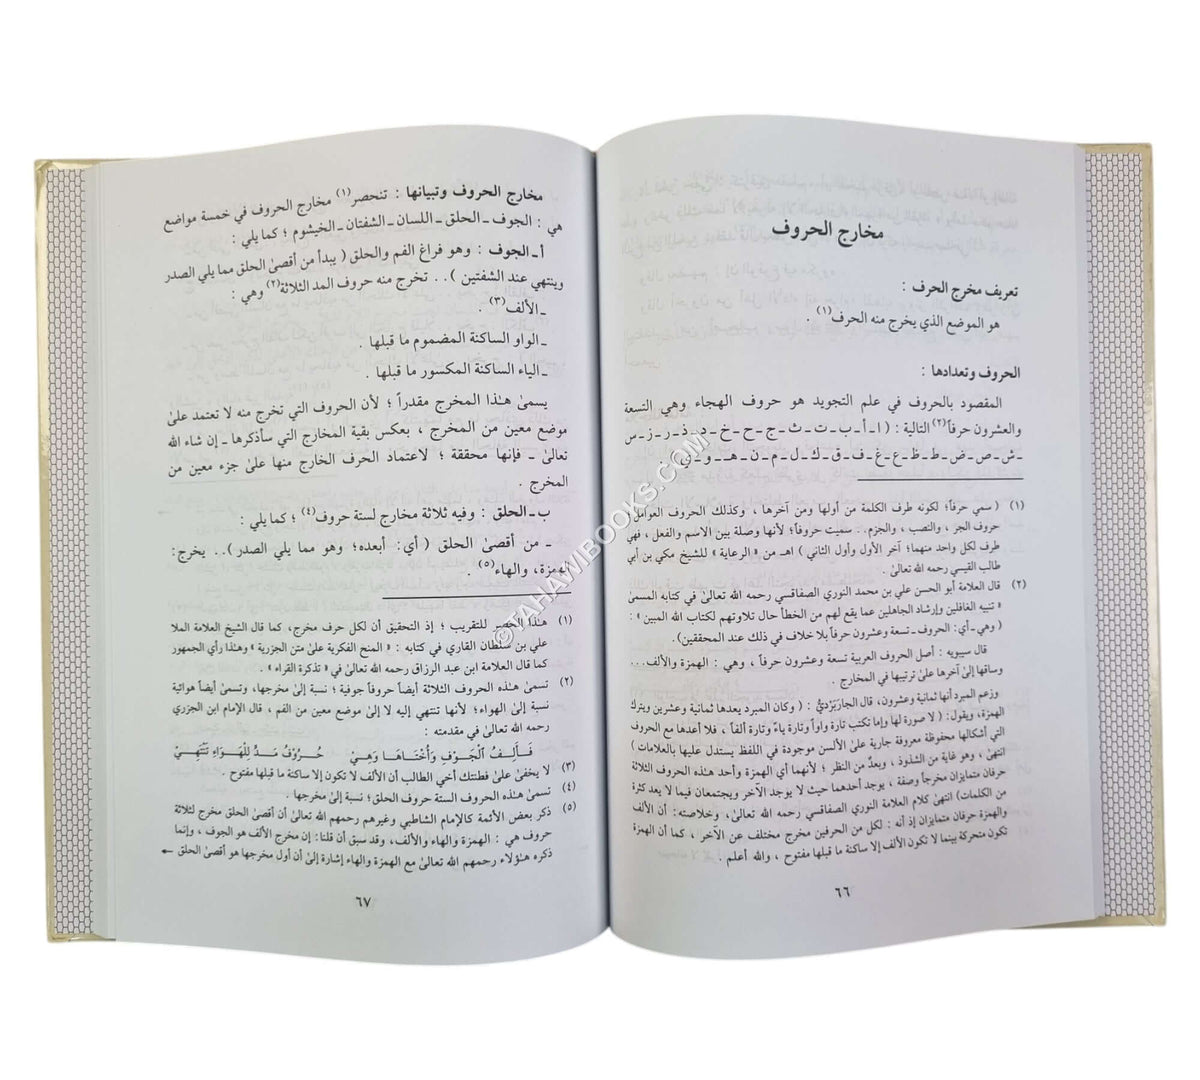 مخارج الحروف
تعريف مخرج الحرف :
هو الموضع الذي يخرج منه الحرف(١) .
الحروف وتعدادها :
المقصود بالحروف في علم التجويد هو حروف الهجاء وهي التسعة
والعشرون حرفاً(٢) التالية : ( ا ـ أ ـ ب ـ ت ـ ث ـ ج ـ ح ـ خ ـ د ـ ذ ـ ر ـ ز ـ س
ـ ش ـ ص ـ ض ـ ط ـ ظ ـ ع ـ غ ـ ف ـ ق ـ ك ـ ل ـ م ـ ن ـ هـ ـ و ـ ي)
(١) ( سمي حرفاً؛ لكونه طرف الكلمة من أولها ومن آخرها ، وكذلك الحروف العوامل:
حروف الجر ، والنصب ، والجزم.. سميت حروفاً؛ لأنها وصلة بين الاسم والفعل ، فهي
طرف لكل واحد منهما؛ آخر الأول وأول الثاني ) اهـ من « الرعاية » للشيخ مكي بن أبي
طالب القيسي رحمه الله تعالىٰ .
(٢) قال العلامة أبو الحسن علي بن محمد النوري الصفاقسي رحمه الله تعالىٰ في كتابه المسمىٰ
« تنبيه الغافلين وإرشاد الجاهلين عما يقع لهم من الخطأ حال تلاوتهم لكتاب الله المبين » :
( وهي ـ أي: الحروف ـ تسعة وعشرون حرفاً بلا خلاف في ذلك عند المحققين).
قال سيبويه : أصل الحروف العربية تسعة وعشرون حرفاً ، وهي : الهمزة والألف...
وساقها إلىٰ آخرها علىٰ ترتيبها في المخارج .
وزعم المبرد أنها ثمانية وعشرون، قال الجاربَرْديُّ : ( وكان المبرد يعدها ثمانية وعشرين ويترك
الهمزة، ويقول: ( لا صورة لها وإما تكتب تارة واواً وتارة ياءً وتارة ألفاً ، فلا أعدها مع الحروف
التي أشكالها محفوظة معروفة جارية علىٰ الألسن موجودة في اللفظ يستدل عليها بالعلامات )
انتهىٰ ، وهو غاية من الشذوذ ، وبعدٌ من النظر ؛ لأنهما أي الهمزة وأحد هذه الحروف الثلاثة
حرفان متمايزان مخرجاً وصفة ، يوجد أحدهما حيث لا يوجد الآخر ويجتمعان فيما لا يعد كثرة
من الكلمات) انتهىٰ كلام العلامة النوري الصفاقسي رحمه الله تعالىٰ ، وخلاصته: أن الألف
والهمزة حرفان متمايزان إذ أنه : لكل من الحرفين مخرج مختلف عن الآخر ، كما أن الهمزة
تكون متحركة بينما لا تكون الألف إلا ساكنة ما قبلها مفتوح ، والله أعلم .
٦٦
مخارج الحروف وتبيانها : تنحصر(١) مخارج الحروف في خمسة مواضع
هي : الجوف ـ الحلق ـ اللسان ـ الشفتان ـ الخيشوم ؛ كما يلي :
أ ـ الجوف : وهو فراغ الفم والحلق ( يبدأ من أقصىٰ الحلق مما يلي الصدر
وينتهي عند الشفتين ) . . تخرج منه حروف المد الثلاثة(٢) وهي :
ـ الألف(٣) .
ـ الواو الساكنة المضموم ما قبلها .
ـ الياء الساكنة المكسور ما قبلها .
يسمىٰ هٰذا المخرج مقدراً ؛ لأن الحروف التي تخرج منه لا تعتمد علىٰ
موضع معين من المخرج ، بعكس بقية المخارج التي سأذكرها ـ إن شاء الله
تعالىٰ ـ فإنها محققة ؛ لاعتماد الحرف الخارج منها علىٰ جزء معين من
المخرج .
ب ـ الحلق : وفيه ثلاثة مخارج لستة حروف(٤) ؛ كما يلي :
ـ من أقصىٰ الحلق ( أي: أبعده؛ وهو مما يلي الصدر).. يخرج:
الهمزة، والهاء(٥) .
(١) هٰذا الحصر للتقريب ؛ إذ التحقيق أن لكل حرف مخرج، كما قال الشيخ العلامة الملا
علي بن سلطان القاري في كتابه : « المنح الفكرية علىٰ متن الجزرية » وهٰذا رأي الجمهور
كما قال العلامة ابن عبد الرزاق رحمه الله تعالىٰ في « تذكرة القراء » .
(٢) تسمىٰ هٰذه الحروف الثلاثة أيضاً حروفاً جوفية ؛ نسبة إلىٰ مخرجها، وتسمىٰ أيضاً هوائية
نسبة إلىٰ الهواء؛ لأنها تنتهي إليه لا إلىٰ موضع معين من الفم ، قال الإمام ابن الجزري
رحمه الله تعالىٰ في مقدمته :
فَـأَلِـفُ الْجَـوْفِ وَأُخْتَـاهَـا وَهِـيْ حُـرُوْفُ مَـدٍّ لِلْهَـوَاءِ تَنْتَهِـيْ
(٣) لا يخفىٰ علىٰ فطنتك أخي الطالب أن الألف لا تكون إلا ساكنة ما قبلها مفتوح .
(٤) تسمىٰ هٰذه الحروف الستة حروف الحلق؛ نسبة إلىٰ مخرجها .
(٥) ذكر بعض الأئمة كالإمام الشاطبي وغيرهم رحمهم الله تعالىٰ أن أقصىٰ الحلق مخرج لثلاثة
حروف هي : الهمزة والهاء والألف، وقد سبق أن قلنا: إن مخرج الألف هو الجوف، وإنما
ذكره هؤلاء رحمهم الله تعالىٰ مع الهمزة والهاء إشارة إلىٰ أن أول مخرجها هو أقصىٰ الحلق
٦٧
© YAHAWIBOOKS.COM